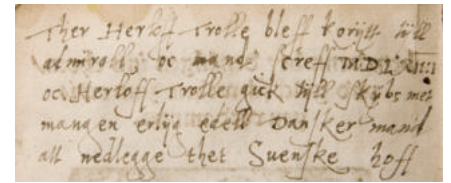 Ther Herloff Trolle bleff koriitt till
admiroll oc mand screff MDLXIIII
oc Herloff Trolle gick till skybs met
mangen erlig edell Dansker mand
att nedlegge thet Suenske hoff